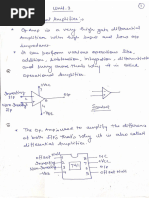 Unit-5
①
Operational Amplifier's
• Op-Amp is a very high gain differential
Amplifier with high input and low o/p
Impedance
• It can perform various operations like,
addition, Subtraction, integration, differentiation
and many more that's why it is called
Operational Amplifier.
Inverting
I/P
Non-Inverting
I/P
+Vcc
-VEE
O/P
Symbol
• The Op-Amp used to amplify the difference
at both I/P's that's why it is also called
differential Amplifier.
Offset Null
Inverting
Non-Inverting
N.C
+Vcc
O/P
Offset Null